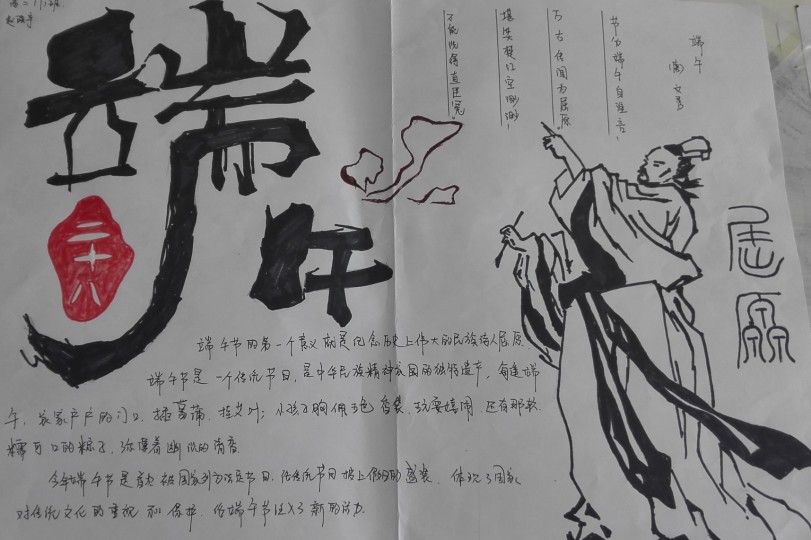 端午
二十八
端午
(唐) 文秀
节分端午自谁言，
万古传闻为屈原。
堪笑楚江空渺渺，
不能洗得直臣冤。
屈原
端午节的第一个意义就是纪念历史上伟大的民族诗人屈原。
端午节是一个传统节日，是中华民族精神家园的独特遗产，每逢端
午，家家户户的门口，插菖蒲、挂艾叶；小孩子胸佩五色香袋，玩耍嬉闹，还有那软
糯可口的粽子，弥漫着幽幽的清香。
今年端午节是首次被国家列为法定节日，给传统节日披上假日的盛装，体现了国家
对传统文化的重视和保护，给端午节注入了新的活力。